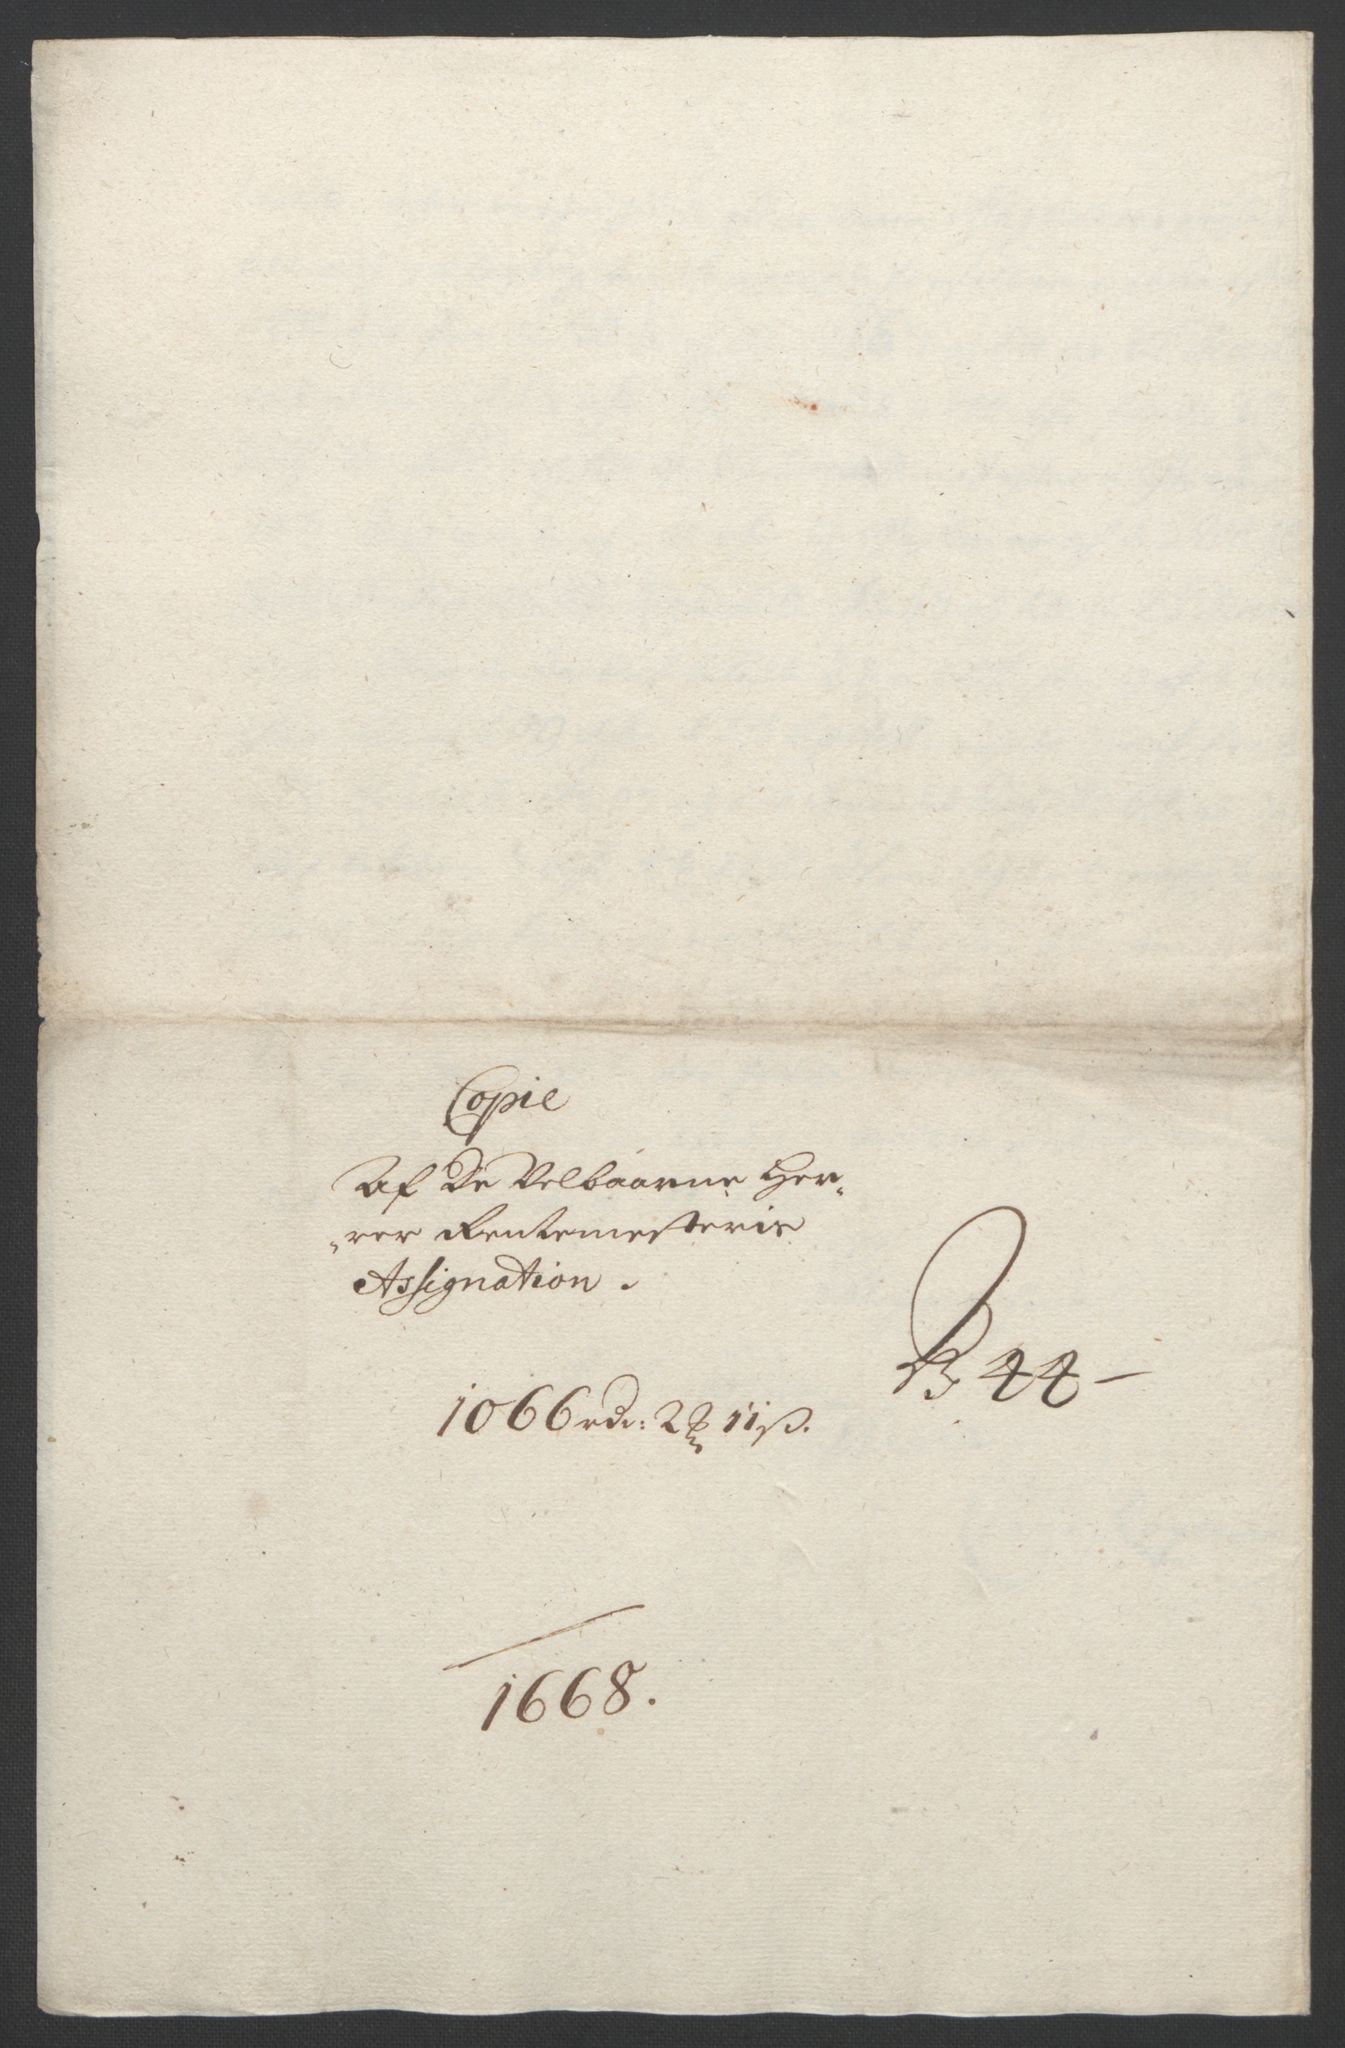 Copie
Af De Velbaarne Her-
rer Rentemesteris
Assignation.
44-
1066 rdr: 2 11 ß.
1668.